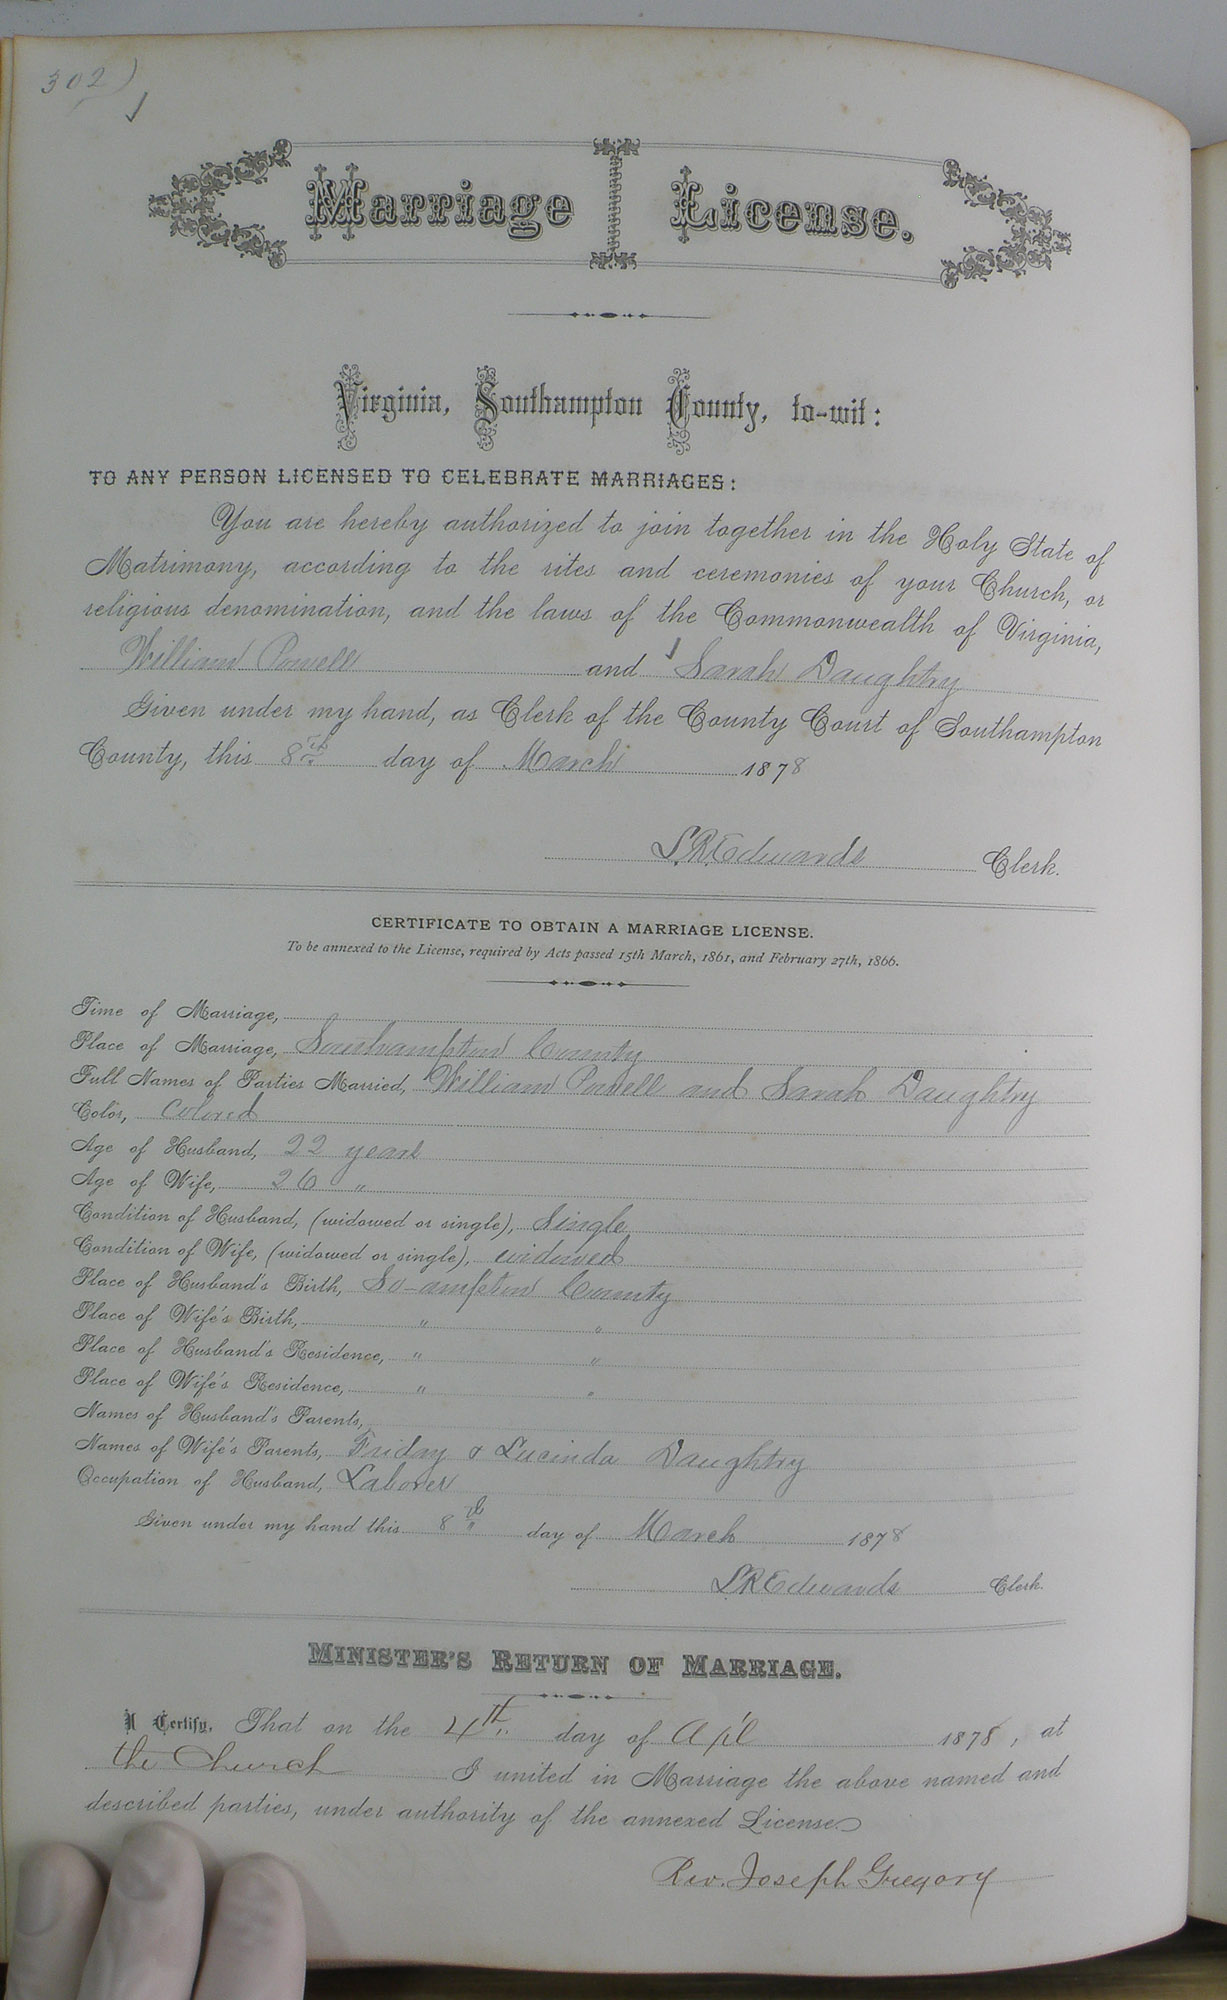 302)
Marriage License.
Virginia, Southampton County, to-wit:
TO ANY PERSON LICENSED TO CELEBRATE MARRIAGES:
You are hereby authorized to join together in the Holy State of
Matrimony, according to the rites and ceremonies of your Church, or
religious denomination, and the laws of the Commonwealth of Virginia,
William Powell and Sarah Daughtry
Given under my hand, as Clerk of the County Court of Southampton
County, this 8th day of March 1878
L.R. Edwards Clerk.
CERTIFICATE TO OBTAIN A MARRIAGE LICENSE.
To be annexed to the License, required by Acts passed 15th March, 1861, and February 27th, 1866.
Time of Marriage,
Place of Marriage, Southampton County
Full Names of Parties Married, William Powell and Sarah Daughtry
Color, Colored
Age of Husband, 22 years
Age of Wife, 26 "
Condition of Husband, (widowed or single), Single
Condition of Wife, (widowed or single), widowed
Place of Husband's Birth, So-ampton County
Place of Wife's Birth, " "
Place of Husband's Residence, " "
Place of Wife's Residence, " "
Names of Husband's Parents,
Names of Wife's Parents, Friday & Lucinda Daughtry
Occupation of Husband, Laborer
Given under my hand this 8th day of March 1878
L.R. Edwards Clerk.
MINISTER'S RETURN OF MARRIAGE.
I Certify, That on the 4th day of Ap'l 1878, at
the Church I united in Marriage the above named and
described parties, under authority of the annexed License.
Rev. Joseph Gregory